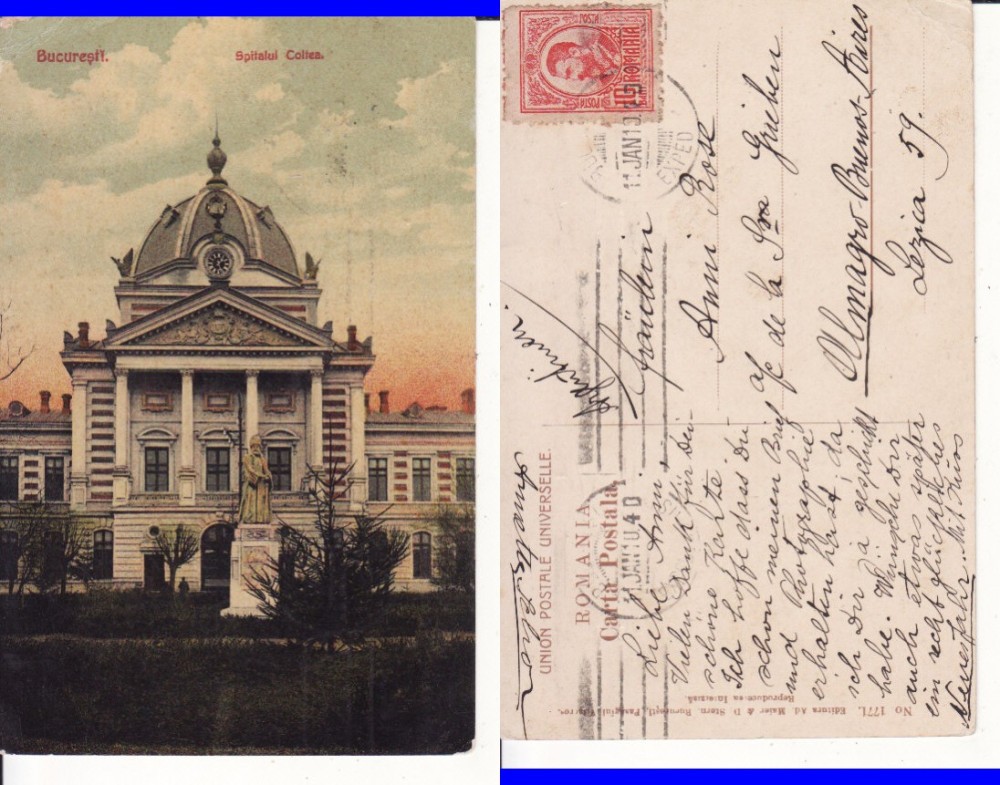 Bucureşti.
Spitalul Coltea.
UNION POSTALE UNIVERSELLE.
ROMANIA
Carta Postala
10 ROMANIA
POSTA
11 JAN 10
EXPED
Fräulein
Anni Rose
de la Sra Grieben
Almagro-Buenos-Aires
Lezica 59.
Argentinien.
Liebe Anni!
Vielen Dank für Dei
schöne Karte!
Ich hoffe dass Du
schon meinen Brief
und Photographie
erhalten hast, da
ich Dir ja geschickt
habe. Wünsche Dir
auch etwas später
ein recht glückliches
Neuesjahr. Mit Kuss
No 1771. Editura Ad. Maier & D. Stern. Bucureşti,